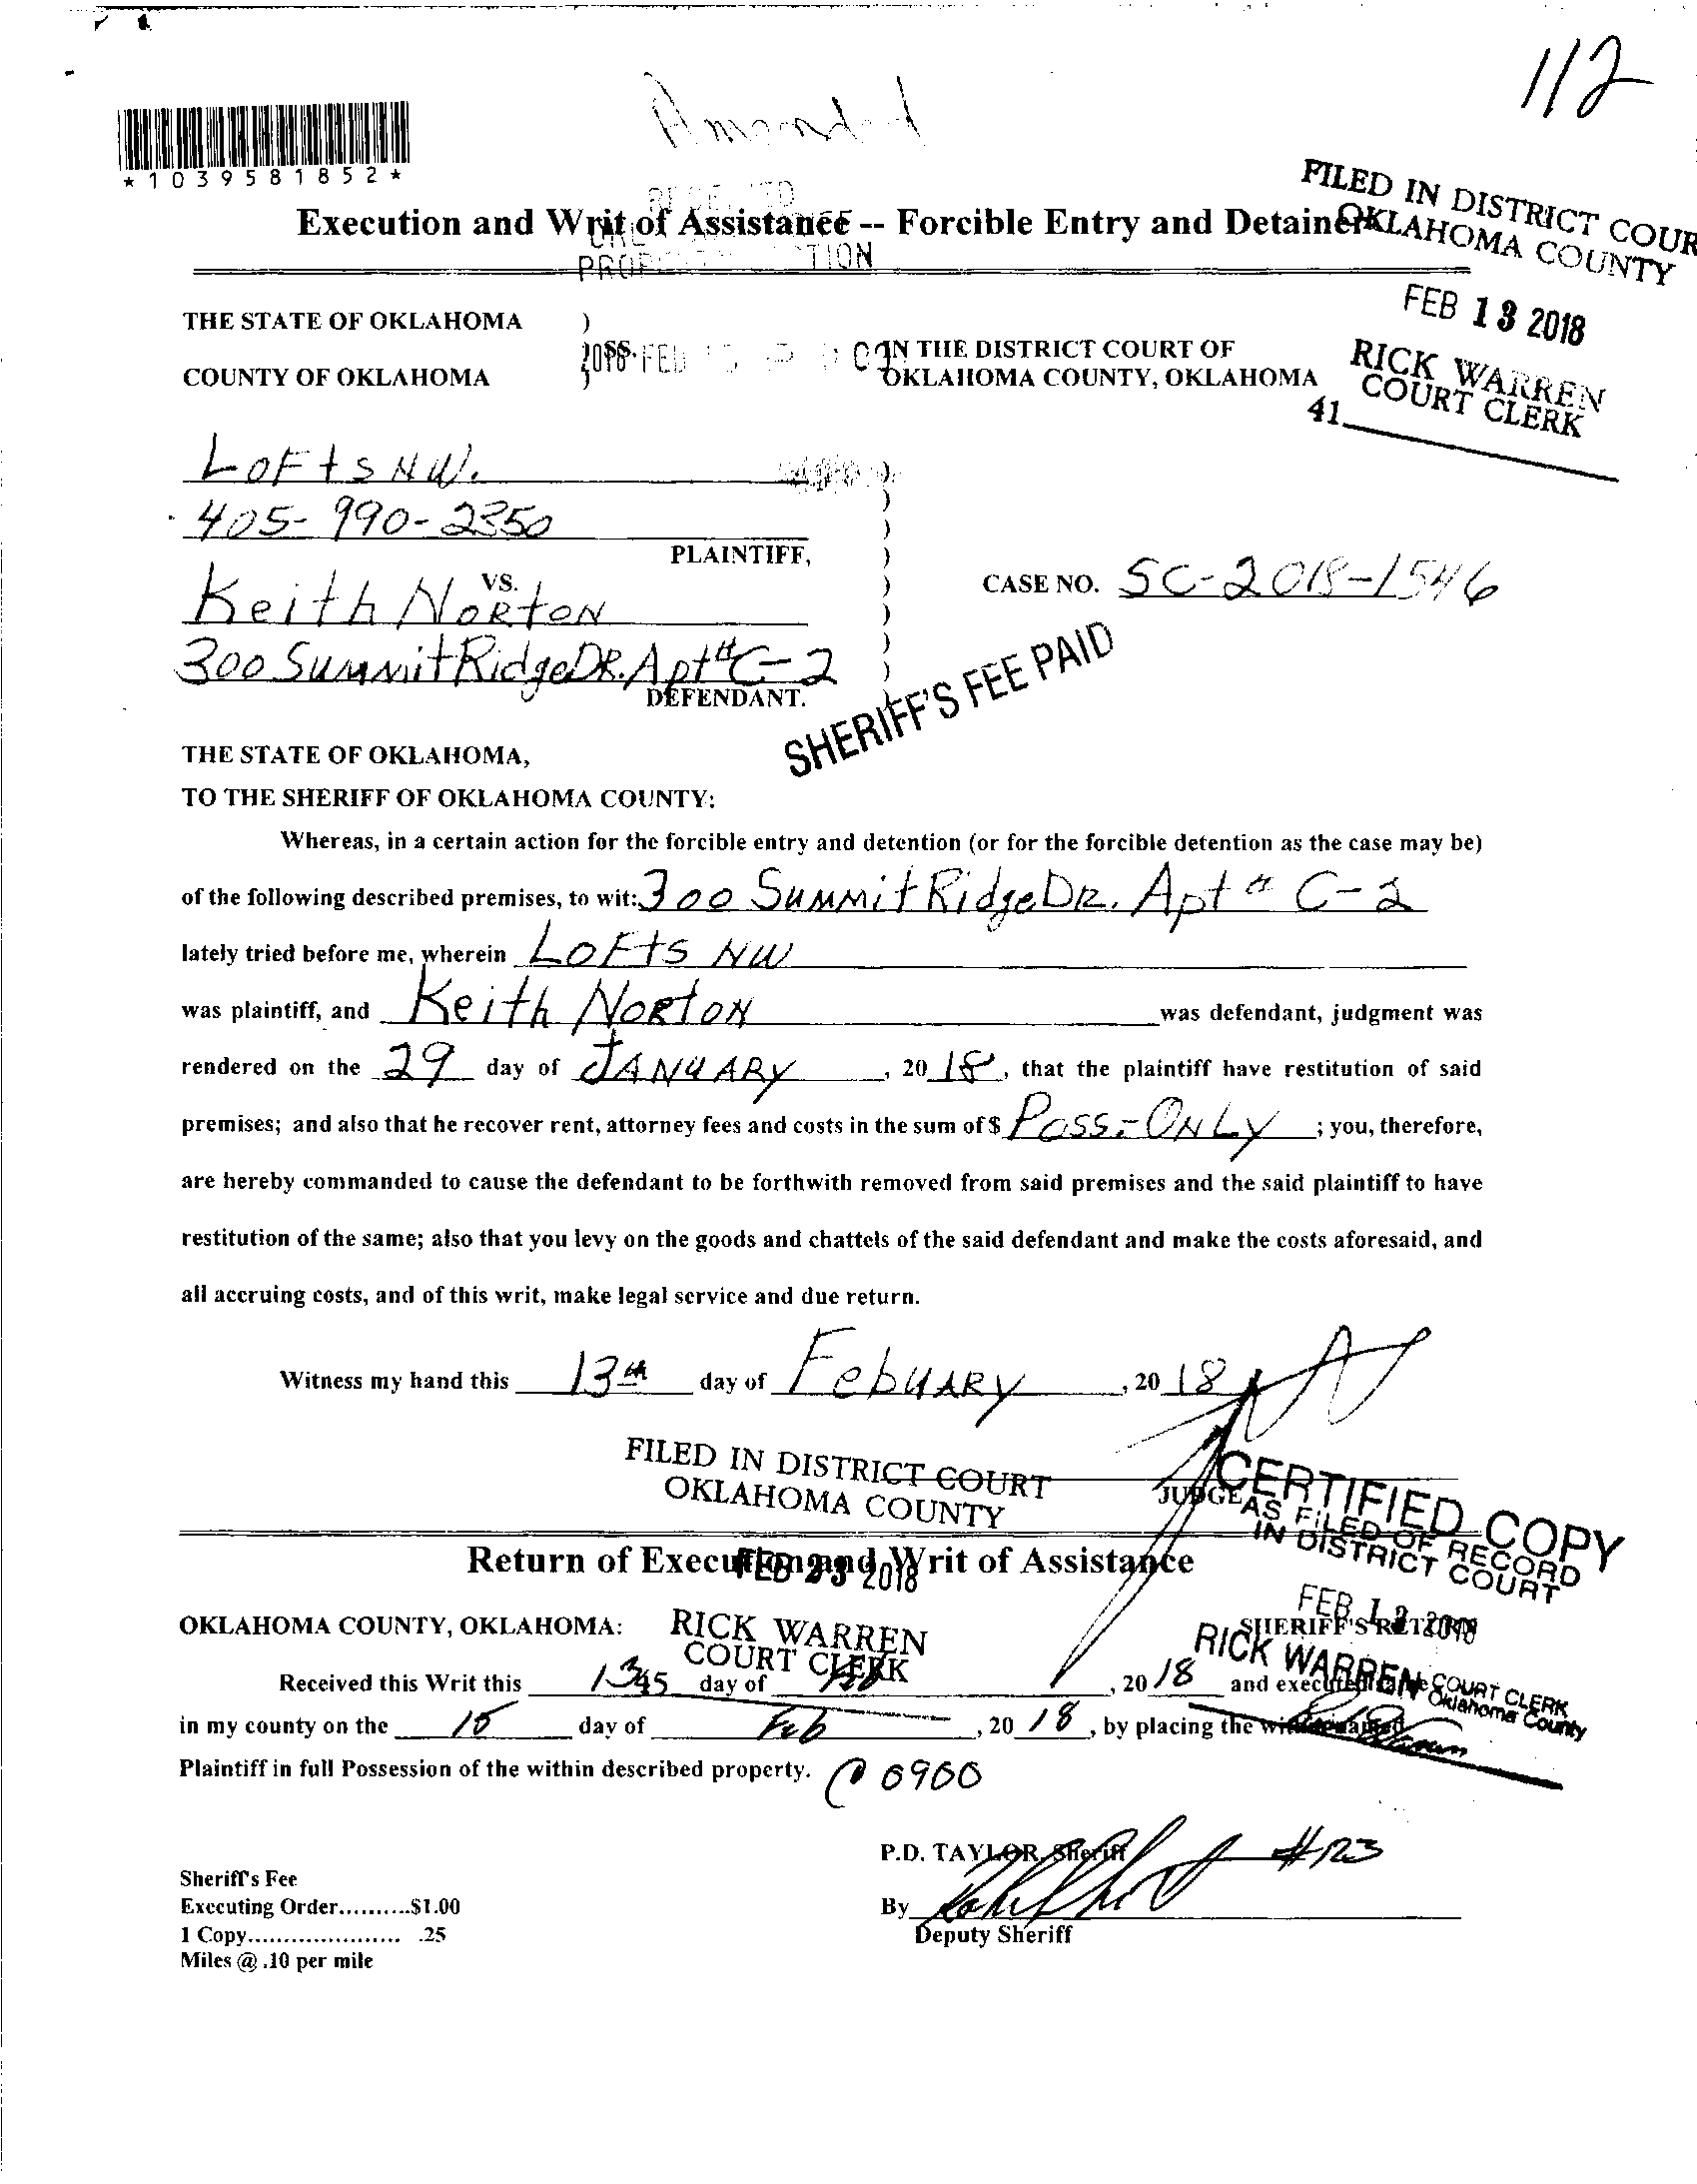 112
Amended
*1039581852*
FILED IN DISTRICT COUR
OKLAHOMA COUNTY
Execution and Writ of Assistance -- Forcible Entry and Detainer
FEB 13 2018
RICK WARREN
COURT CLERK
41
THE STATE OF OKLAHOMA )
SS.
COUNTY OF OKLAHOMA )
IN THE DISTRICT COURT OF
OKLAHOMA COUNTY, OKLAHOMA
LOFTS NW.
405-990-2350
PLAINTIFF,
VS.
Keith NORTON
300 Summit Ridge DR. Apt # C-2
DEFENDANT.
CASE NO. SC-2018-1546
SHERIFF'S FEE PAID
THE STATE OF OKLAHOMA,
TO THE SHERIFF OF OKLAHOMA COUNTY:
Whereas, in a certain action for the forcible entry and detention (or for the forcible detention as the case may be)
of the following described premises, to wit: 300 Summit Ridge DR. Apt # C-2
lately tried before me, wherein LOFTS NW
was plaintiff, and Keith NORTON was defendant, judgment was
rendered on the 29 day of JANUARY, 2018, that the plaintiff have restitution of said
premises; and also that he recover rent, attorney fees and costs in the sum of $ Poss.-ONLY ; you, therefore,
are hereby commanded to cause the defendant to be forthwith removed from said premises and the said plaintiff to have
restitution of the same; also that you levy on the goods and chattels of the said defendant and make the costs aforesaid, and
all accruing costs, and of this writ, make legal service and due return.
Witness my hand this 13th day of FebuARY, 2018
JUDGE
FILED IN DISTRICT COURT
OKLAHOMA COUNTY
FEB 23 2018
RICK WARREN
COURT CLERK
CERTIFIED COPY
AS FILED OF RECORD
IN DISTRICT COURT
FEB 13 2018
RICK WARREN COURT CLERK
Oklahoma County
Return of Execution and Writ of Assistance
OKLAHOMA COUNTY, OKLAHOMA: SHERIFF'S RETURN
Received this Writ this day of Feb, 2018 and executed the same
in my county on the 15 day of Feb, 2018, by placing the within named
Plaintiff in full Possession of the within described property. @ 0900
P.D. TAYLOR, Sheriff #123
By
Deputy Sheriff
Sheriff's Fee
Executing Order..........$1.00
1 Copy..................... .25
Miles @ .10 per mile